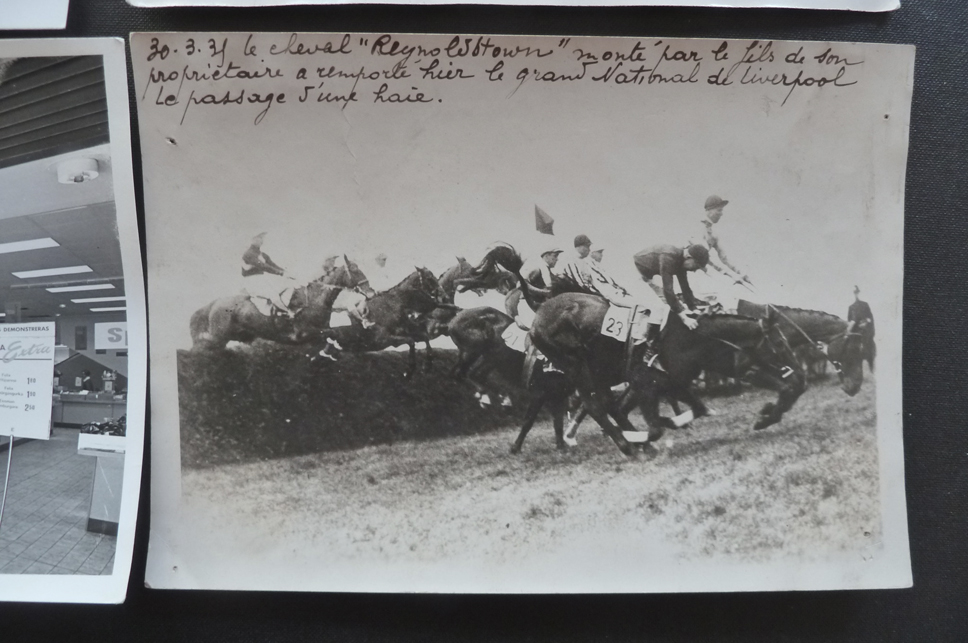 30.3.35 le cheval "Reynoldstown" monté par le fils de son
propriétaire a remporté hier le grand National de Liverpool
Le passage d'une haie.
23
DEMONSTRERAS
Extra
1
1
2
S